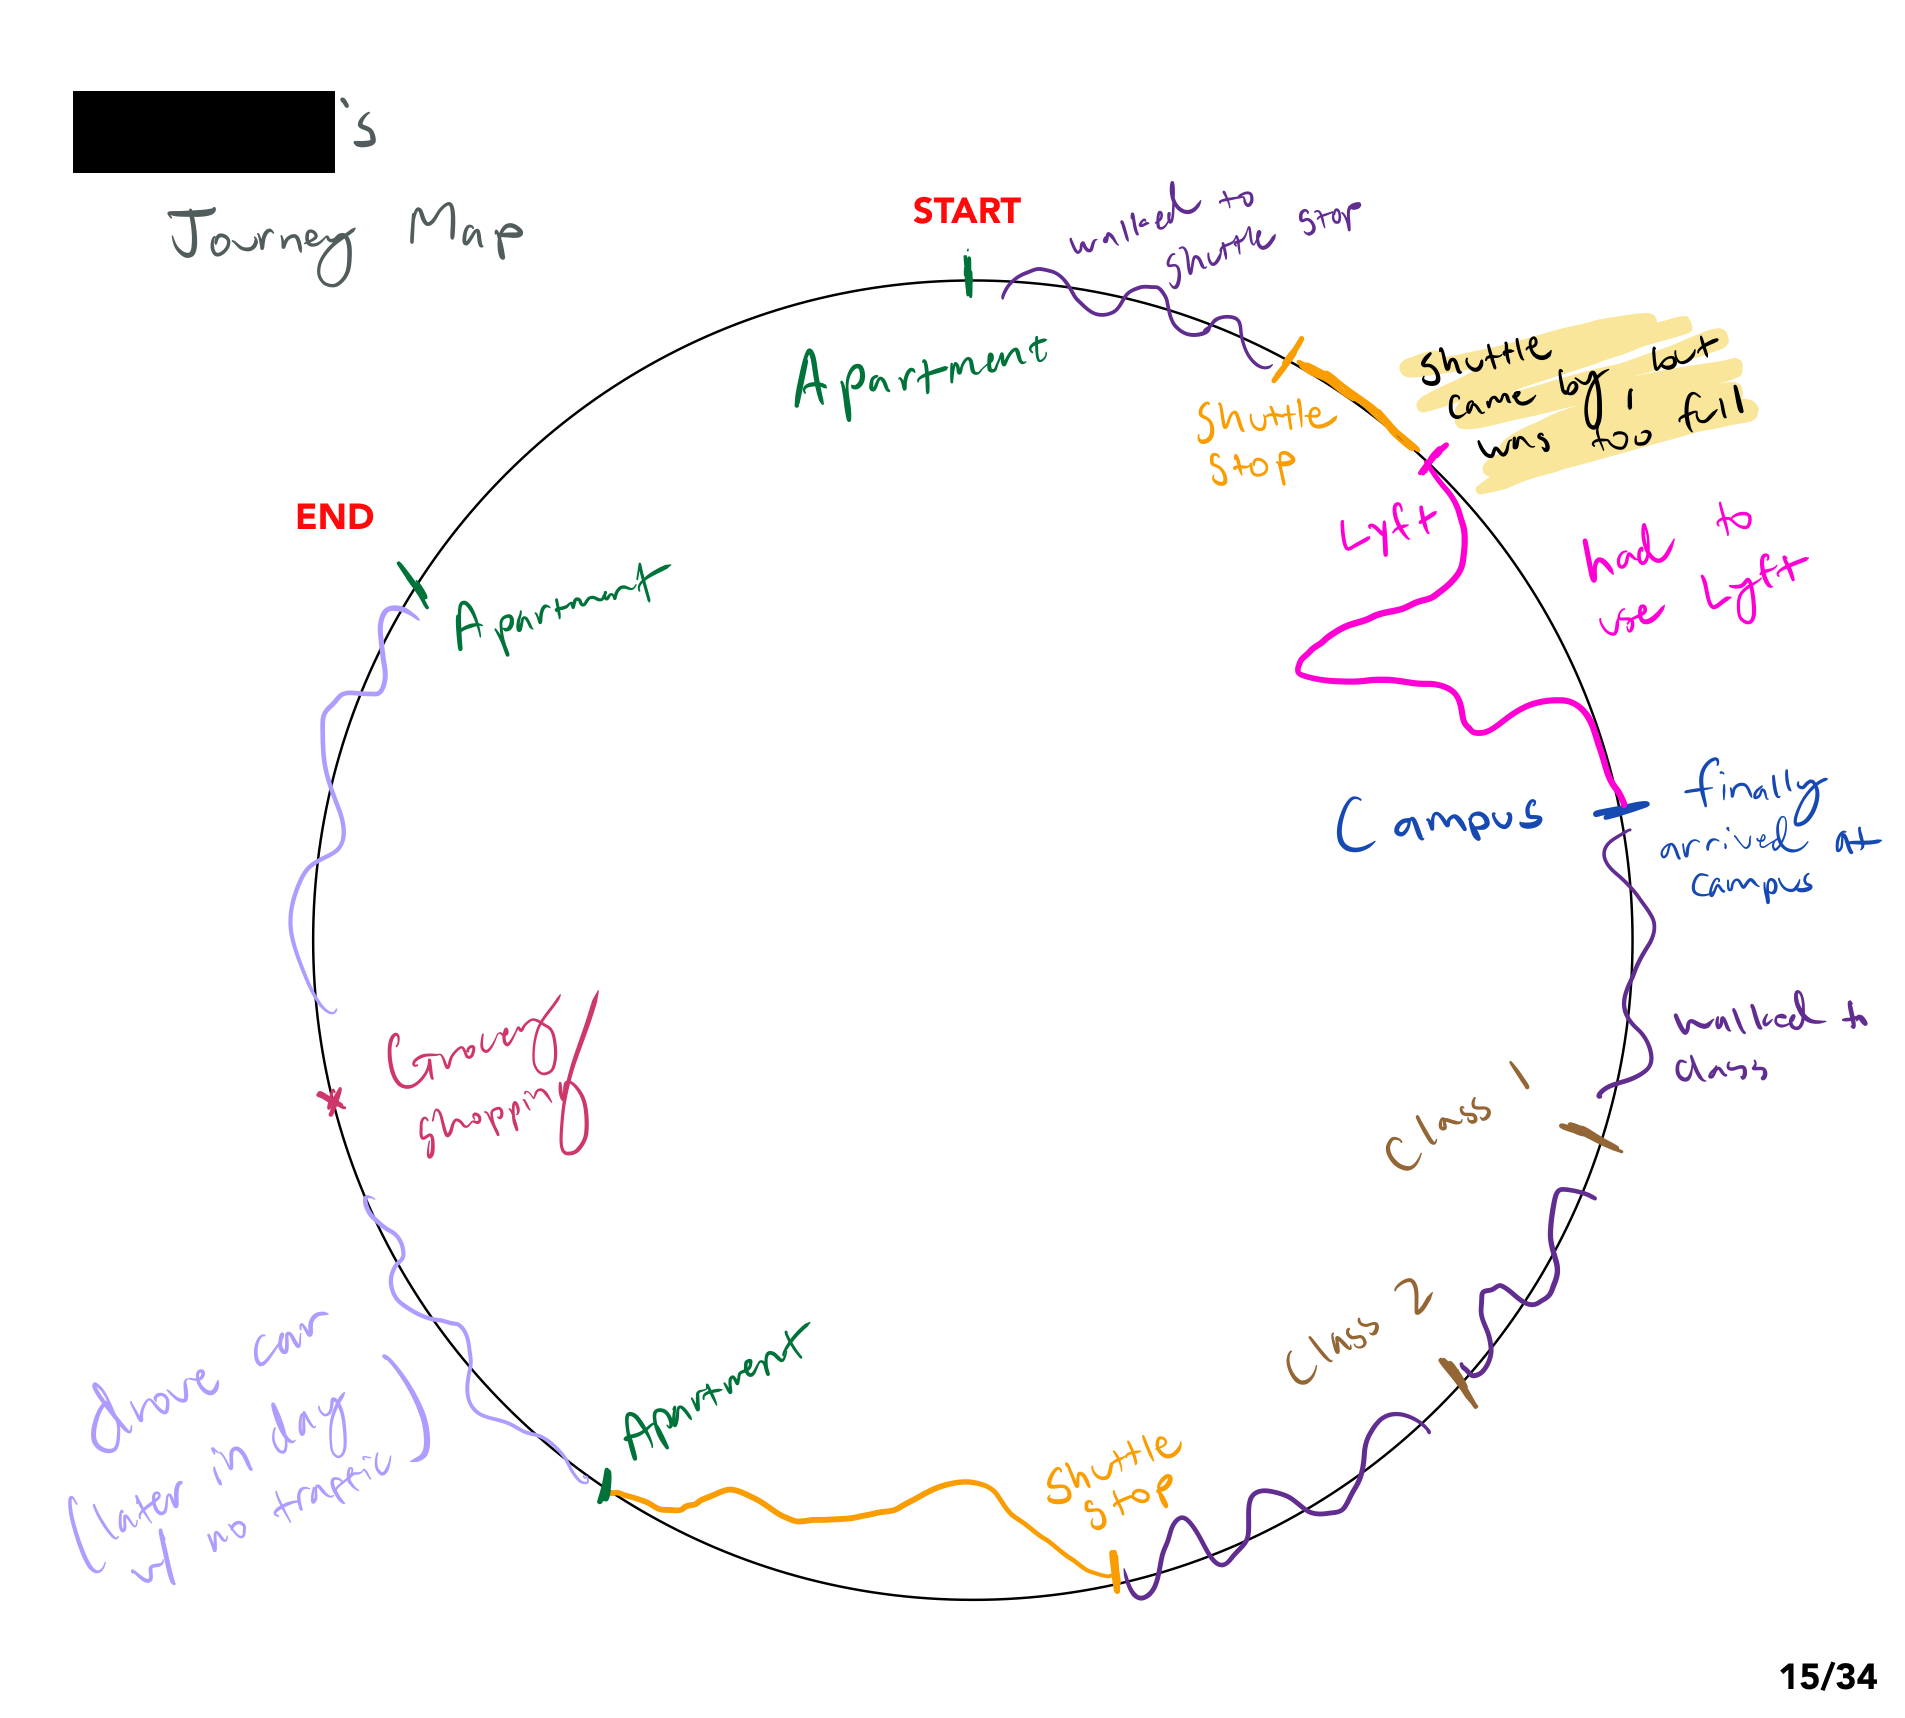 's
Journey Map
START
walked to
shuttle stop
Apartment
Shuttle
Stop
Shuttle
came by, but
was too full
Lyft
had to
use Lyft
Campus
finally
arrived at
campus
walked to
class
Class 1
Class 2
Shuttle
Stop
Apartment
drove car
(later in day
w/ no traffic)
Grocery
shopping
Apartment
END
15/34